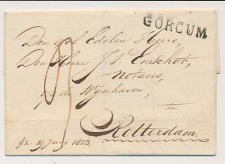 GORCUM
Den Wel Edelen Heere,
Den Heere J. J. Enschot,
Notaris,
op de Wijnhaven,
te
Rotterdam
1823.